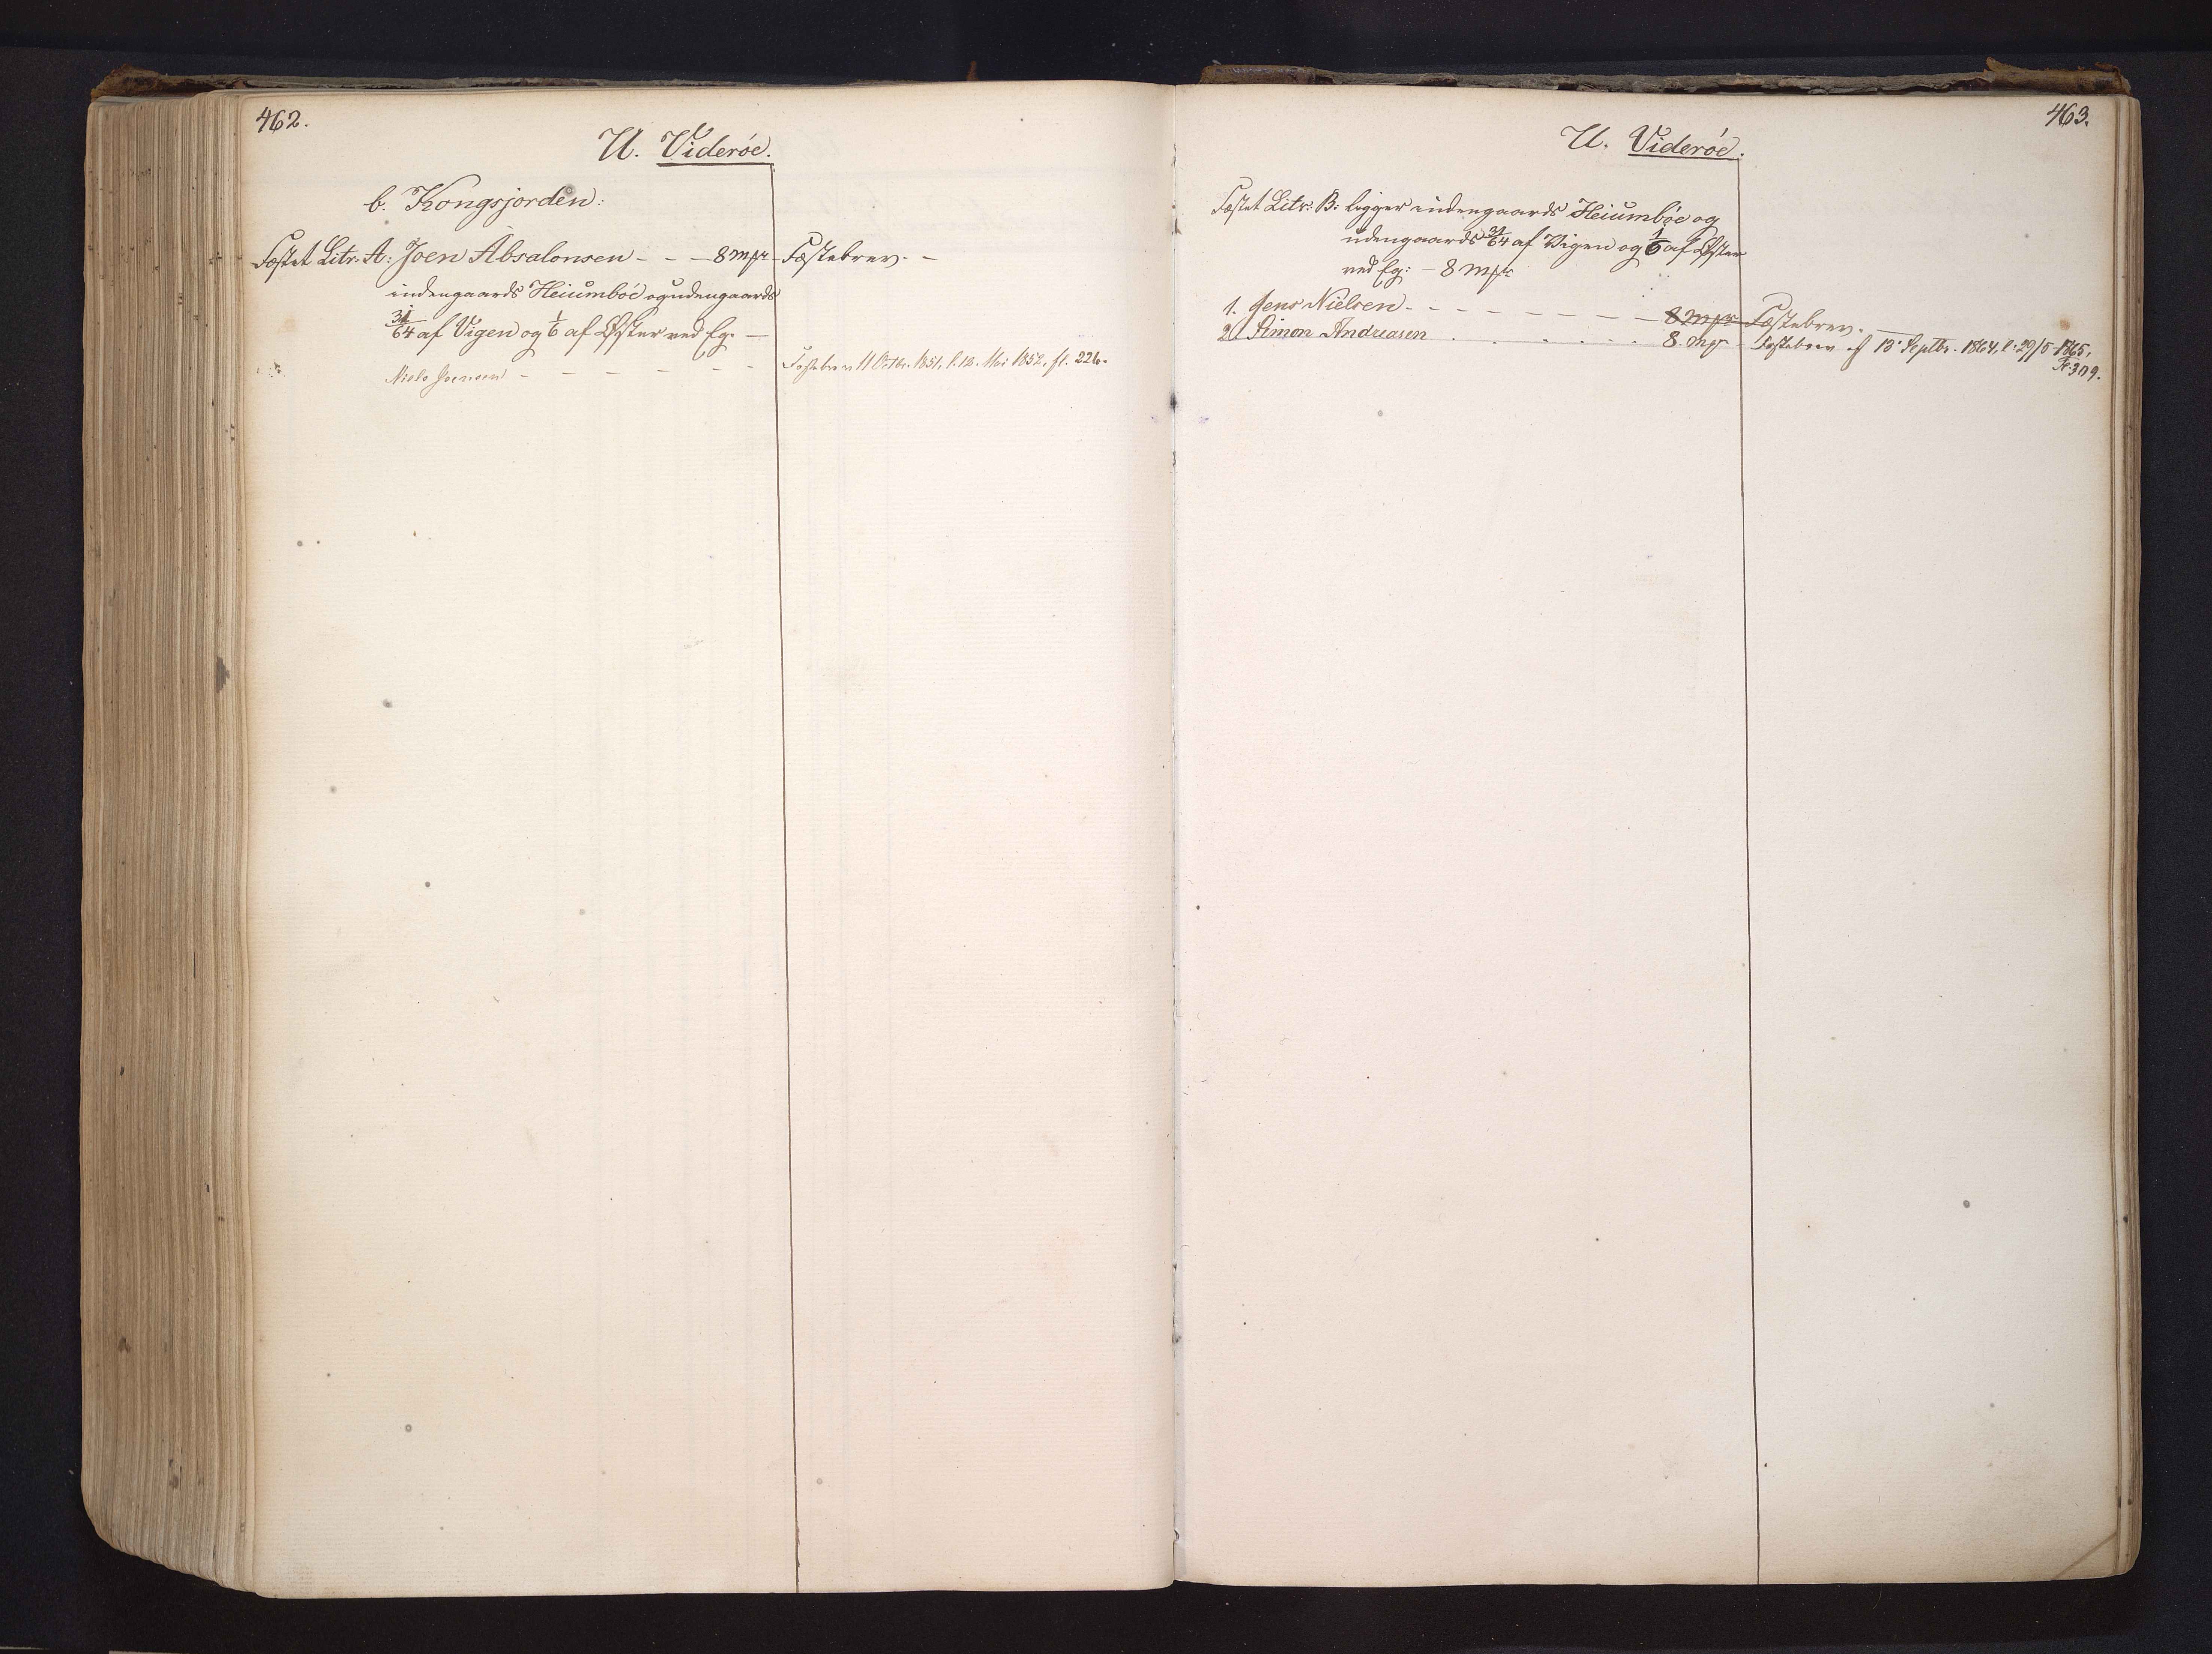 462.
U. Viderøe.
b. Kongsjorden:
Fæstet Litr. A: Joen Absalonsen - - - 8 mpr - Fæstebrev. -
indengaards Heiumböe og udengaards
31/64 af Vigen og 1/6 af Øster ved Eg. -
Niels Joensen - - - - - - Fæstebrev 11 Octbr. 1851, l. 12. Mai 1852, fl. 226.
463.
U. Viderøe.
Fæstet Litr: B: ligger indengaards Heiumböe og
udengaards 31/64 af Vigen og 1/6 af Øster
ved Eg: - 8 mpr
1. Jens Nielsen - - - - - - - 8 mpr Fæstebrev. -
2. Simon Andreasen . . . . . . 8. mp - Fæstebrev af 13' Septbr. 1864, l: 29/5 1865,
Fl. 309.